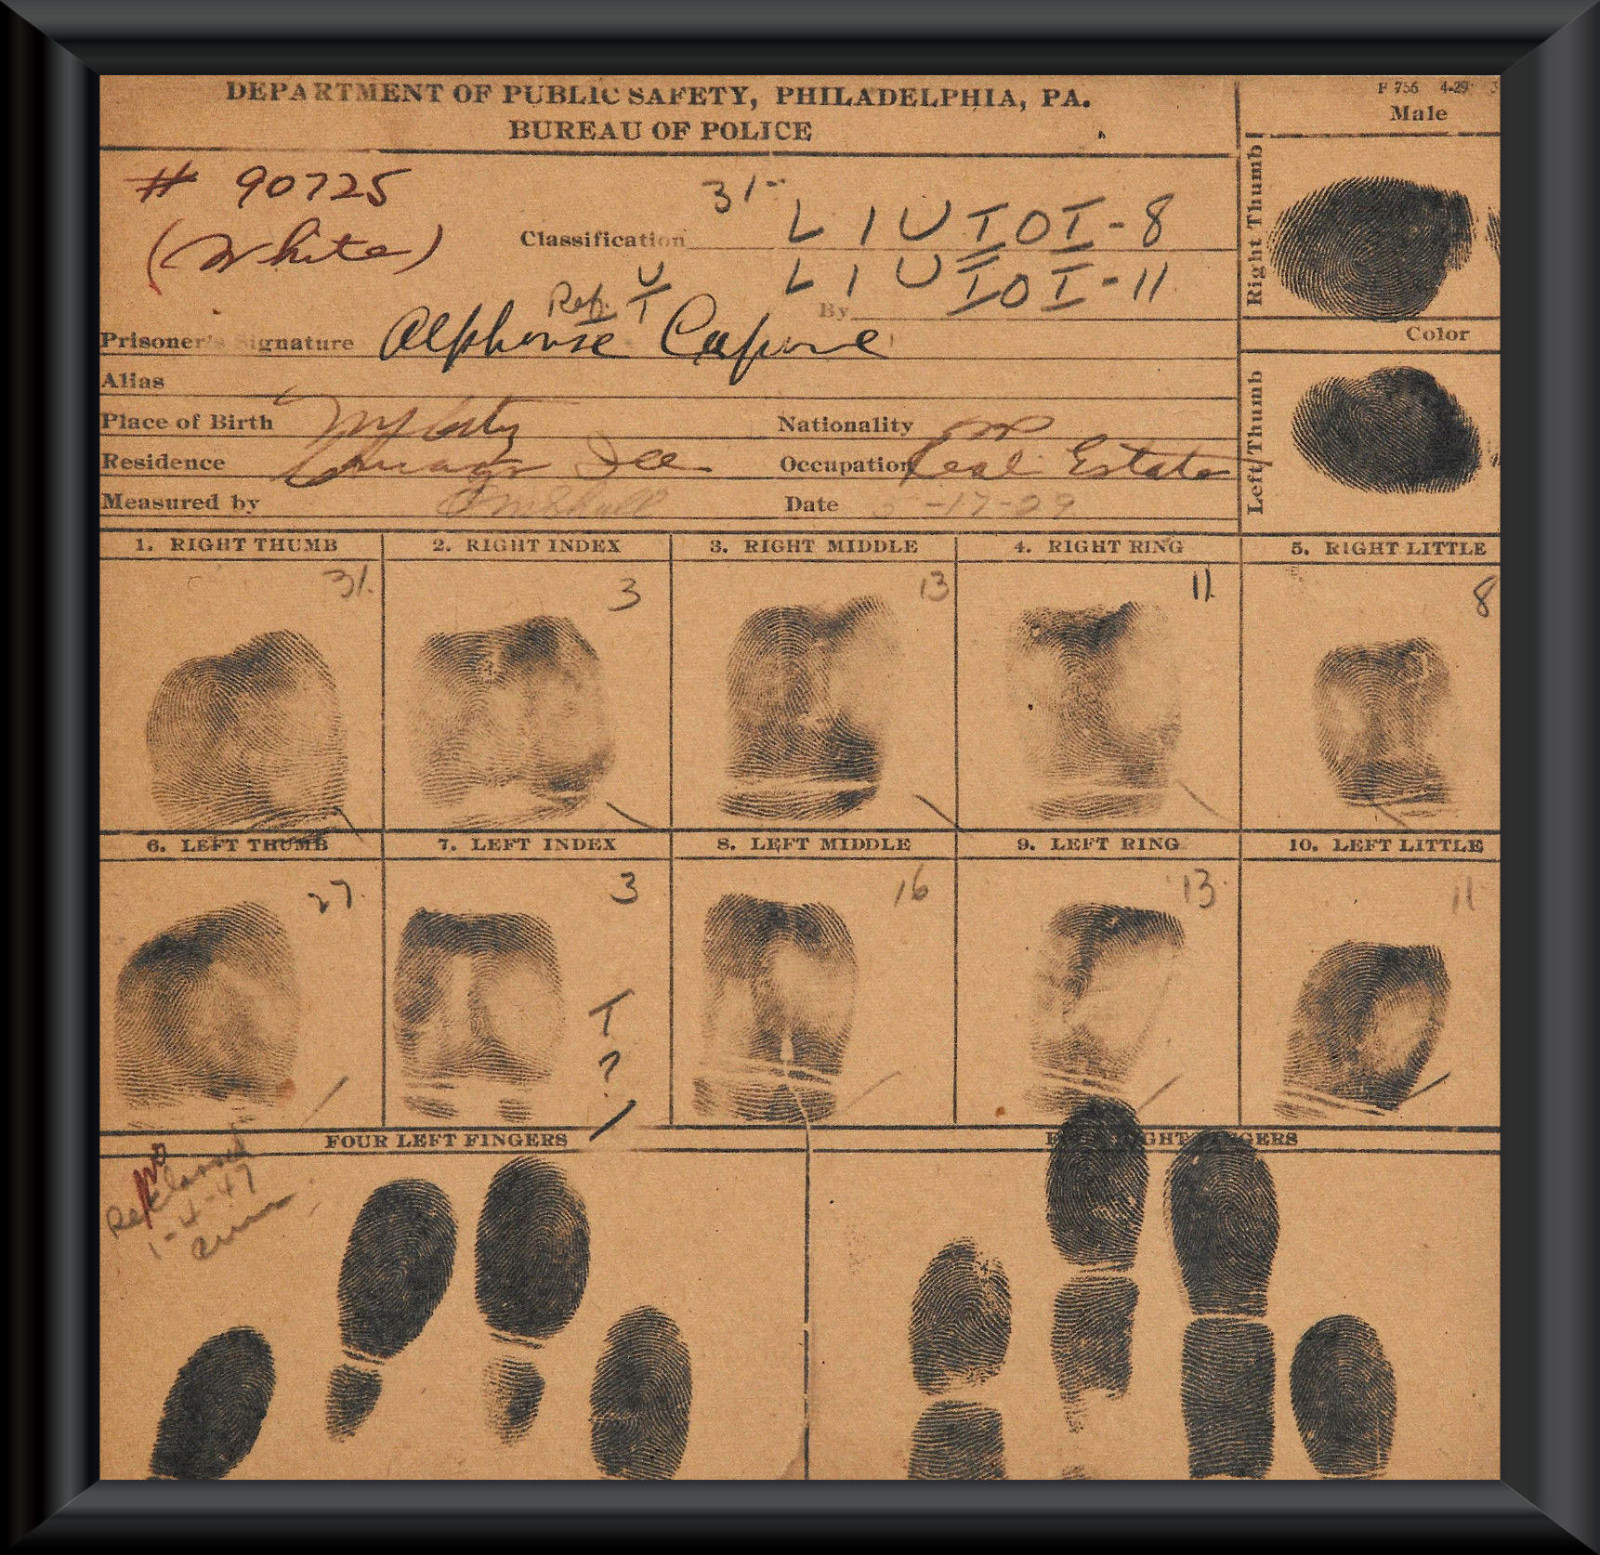 DEPARTMENT OF PUBLIC SAFETY, PHILADELPHIA, PA.
BUREAU OF POLICE
F 756 4-29
Male
# 90725
(White)
31-
Classification L I U I O I-8
L I U I O I-11
Ref. U/T
By
Prisoner's Signature Alphonse Capone
Alias
Place of Birth NY City
Nationality
Residence Chicago Ill
Occupation Real Estate
Measured by
Date -17-29
Right Thumb
Color
Left Thumb
1. RIGHT THUMB 2. RIGHT INDEX 3. RIGHT MIDDLE 4. RIGHT RING 5. RIGHT LITTLE
31. 3 13 11 8
6. LEFT THUMB 7. LEFT INDEX 8. LEFT MIDDLE 9. LEFT RING 10. LEFT LITTLE
27. 3 16 13 11
T
?
FOUR LEFT FINGERS
RIGHT FINGERS
1-4-47